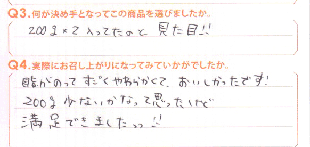 Q3.何が決め手となってこの商品を選びましたか。
200g×2入ってたのと 見た目!!
Q4.実際にお召し上がりになってみていかがでしたか。
脂がのってすごくやわらかくて、おいしかったです!
200g少ないかなって思ったけど
満足できましたっっ!!